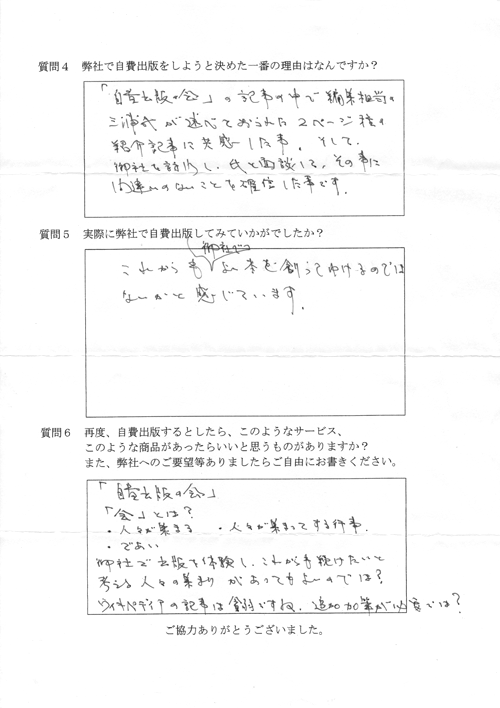 質問４ 弊社で自費出版をしようと決めた一番の理由はなんですか？
「自費出版の会」の記事の中で編集担当の
三浦氏が述べておられた２ページ程の
紹介記事に共感した事。そして、
御社を訪問し、氏と面談して、その事に
間違いのないことを確信した事です。
質問５ 実際に弊社で自費出版してみていかがでしたか？
御社で
これからも よい本を創ってゆけるのでは
ないかと感じています。
質問６ 再度、自費出版するとしたら、このようなサービス、
このような商品があったらいいと思うものがありますか？
また、弊社へのご要望等ありましたらご自由にお書きください。
「自費出版の会」
「会」とは？
・人々が集まる ・人々が集まってする行事。
・であい
御社で出版を体験し、これからも続けたいと
考える人々の集まりがあってもよいのでは？
ウィキペディアの記事は ですね。追加加筆が必要では？
ご協力ありがとうございました。